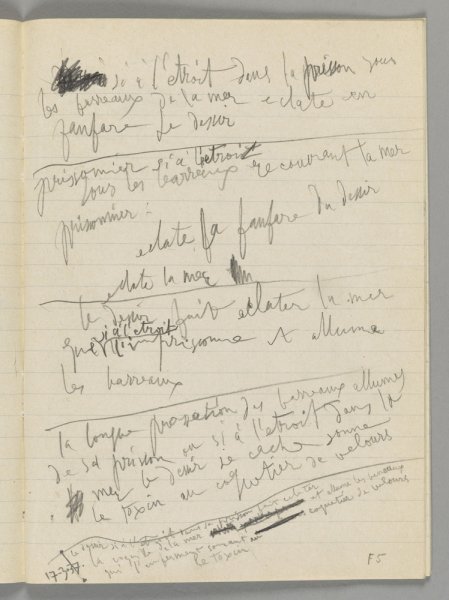 si à l'etroit dans la prison sous
les barreaux de la mer eclate en
fanfare le desir
prisonnier si à l'etroit
sous les barreaux recouvrant la mer
prisonnier :
eclate la fanfare du desir
eclate la mer
le desir fait eclater la mer
que si à l'etroit
emprisonne et allume
les barreaux
la longue des barreaux allumes
de sa prison ou si à l'etroit dans la
mer le desir se cache sonne
le toxin au coquetier de velours
le desir si à l'etroit dans sa prison fait eclater
la de la mer et allume les barreaux
qui l'enferment sonnent au coquetier de velours
le toxin
17-3-37.
F5